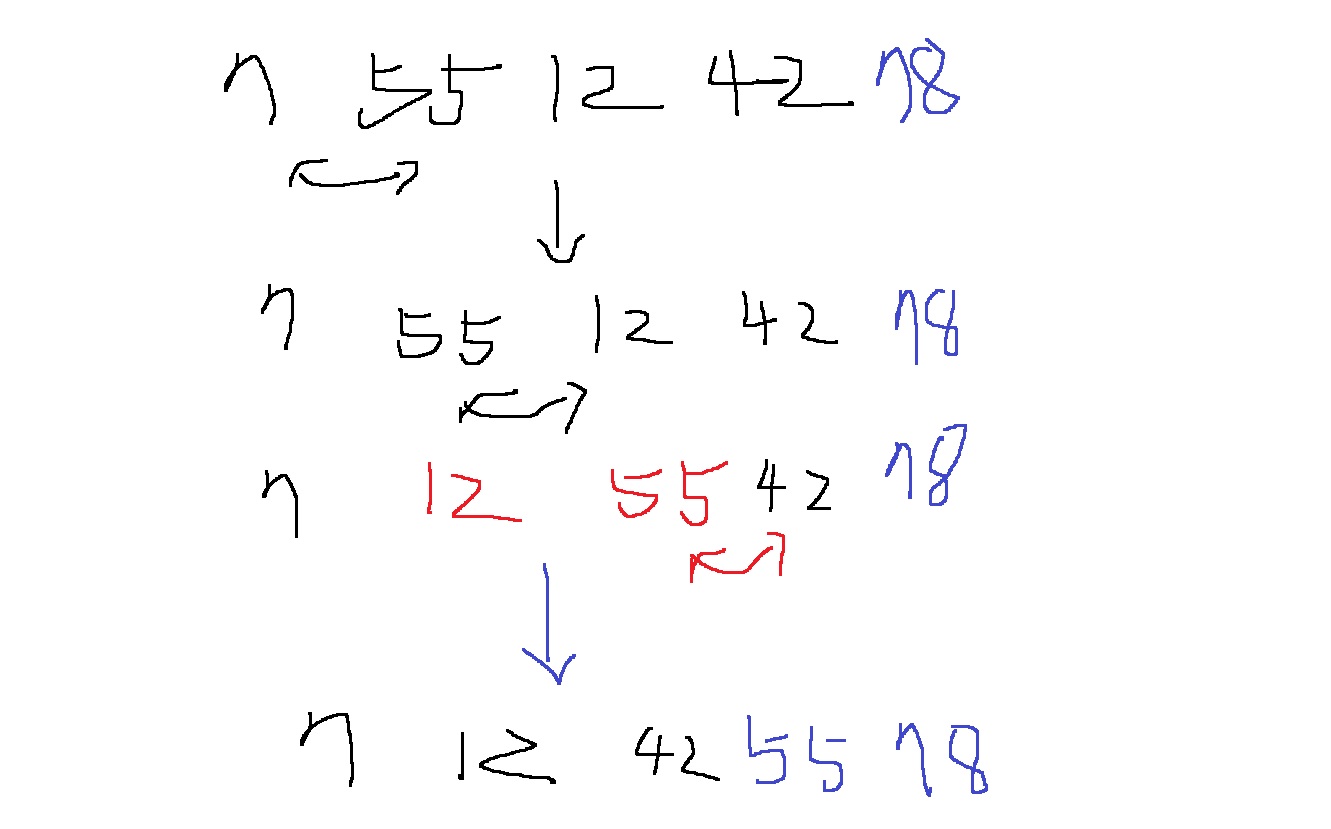 7 55 12 42 78
7 55 12 42 78
7 12 55 42 78
7 12 42 55 78